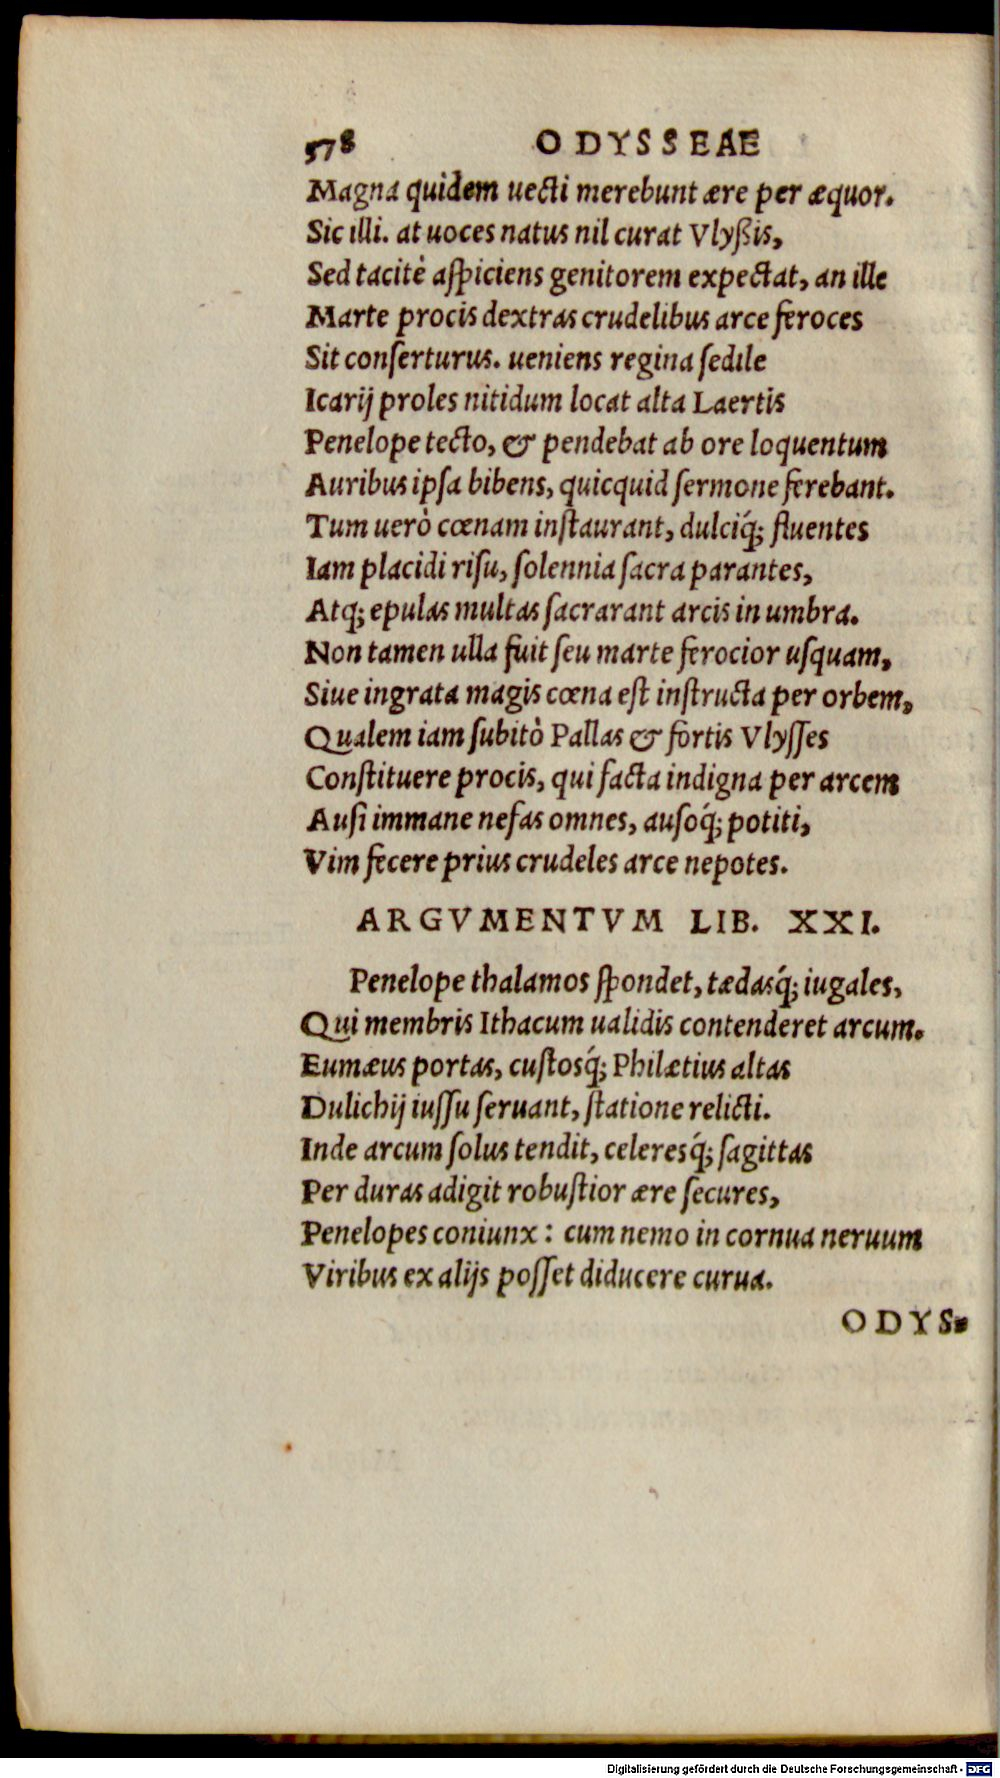 578 ODYSSEAE
Magna quidem uecti merebunt ære per æquor.
Sic illi. at uoces natus nil curat Vlyßis,
Sed tacitè aſpiciens genitorem expectat, an ille
Marte procis dextras crudelibus arce feroces
Sit conſerturus. ueniens regina ſedile
Icarij proles nitidum locat alta Laertis
Penelope tecto, & pendebat ab ore loquentum
Auribus ipſa bibens, quicquid ſermone ferebant.
Tum uerò cœnam inſtaurant, dulciq́; fluentes
Iam placidi riſu, ſolennia ſacra parantes,
Atq; epulas multas ſacrarant arcis in umbra.
Non tamen ulla fuit ſeu marte ferocior uſquam,
Siue ingrata magis cœna eſt inſtructa per orbem,
Qualem iam ſubitò Pallas & fortis Vlyſſes
Conſtituere procis, qui facta indigna per arcem
Auſi immane nefas omnes, auſoq́; potiti,
Vim fecere prius crudeles arce nepotes.
ARGVMENTVM LIB. XXI.
Penelope thalamos ſpondet, tædasq́; iugales,
Qui membris Ithacum ualidis contenderet arcum.
Eumæus portas, cuſtosq́; Philætius altas
Dulichij iuſſu ſeruant, ſtatione relicti.
Inde arcum ſolus tendit, celeresq́; ſagittas
Per duras adigit robuſtior ære ſecures,
Penelopes coniunx: cum nemo in cornua neruum
Viribus ex alijs poſſet diducere curua.
ODYS-
Digitalisierung gefördert durch die Deutsche Forschungsgemeinschaft - DFG